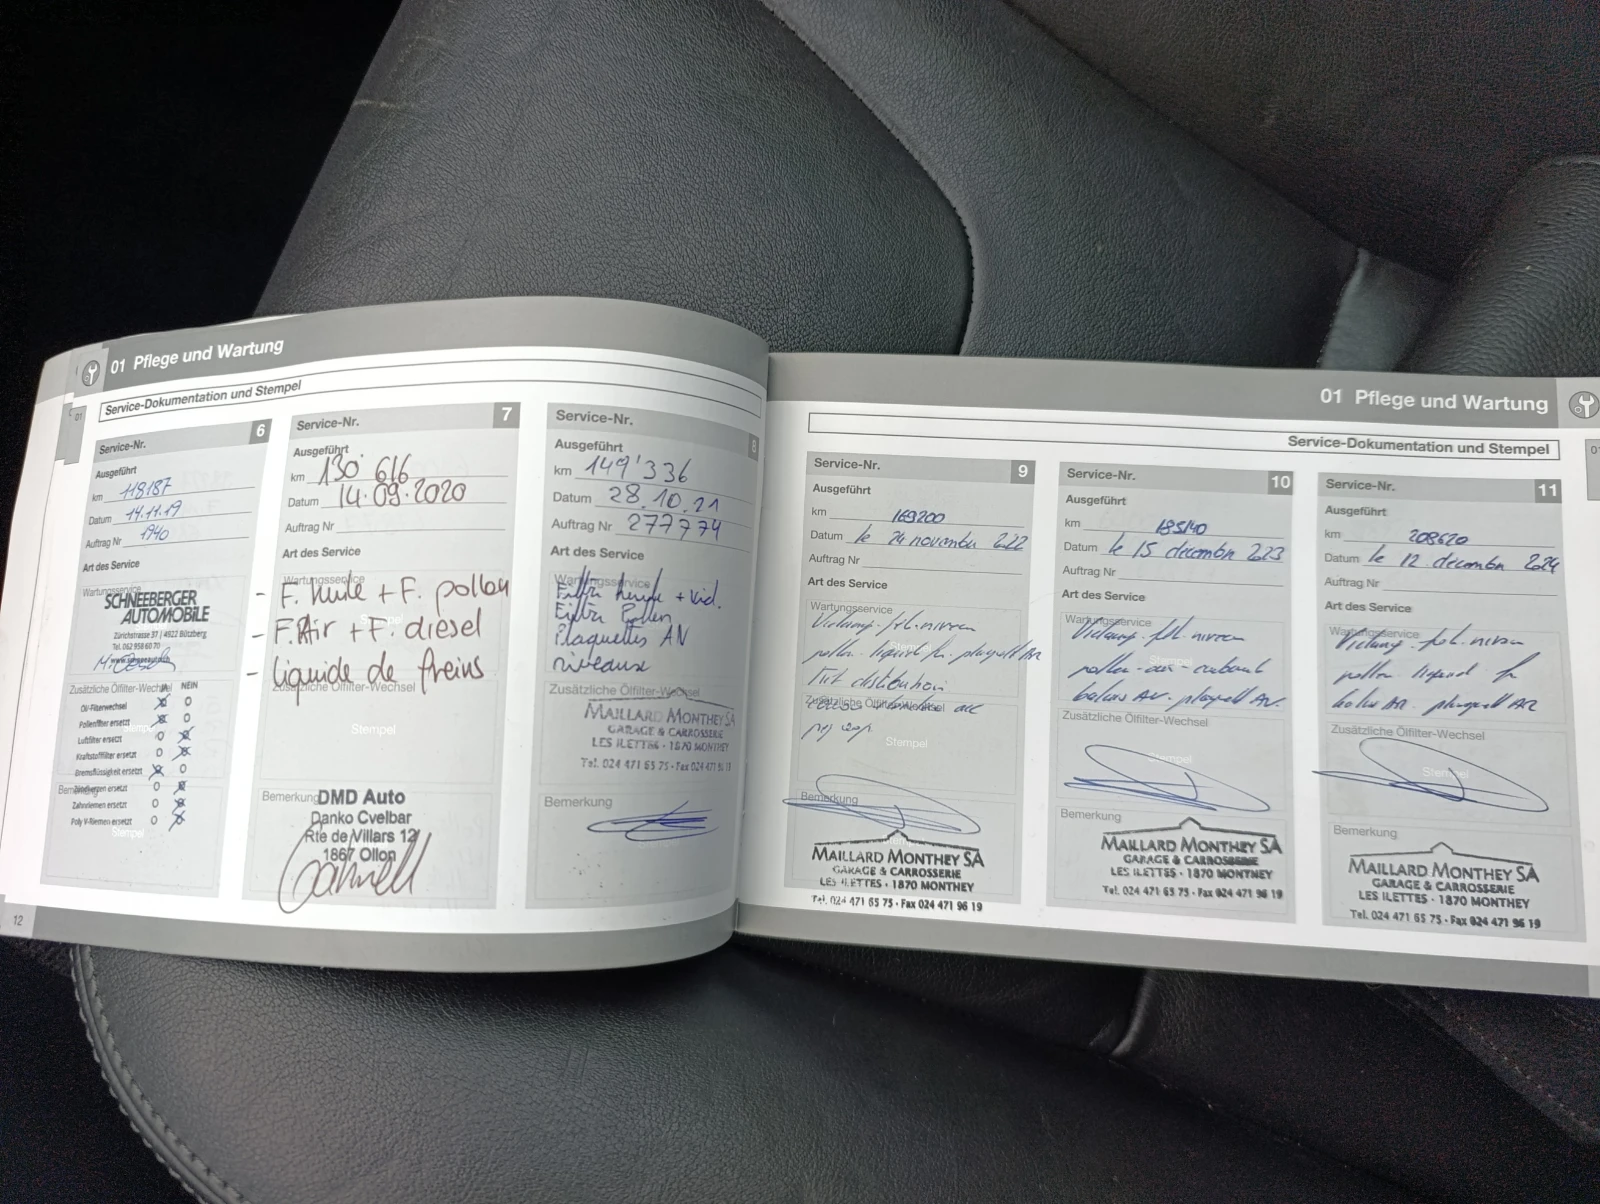 01 Pflege und Wartung
Service-Dokumentation und Stempel
01
Service-Nr. 6
Ausgeführt
km 118187
Datum 14.11.19
Auftrag Nr 1940
Art des Service
Wartungsservice
SCHNEEBERGER
AUTOMOBILE
Zürichstrasse 37 | 4922 Bützberg
Tel. 062 958 60 70
Zusätzliche Ölfilter-Wechsel
JA NEIN
Öl-/Filterwechsel
Pollenfilter ersetzt
Luftfilter ersetzt
Kraftstofffilter ersetzt
Bremsflüssigkeit ersetzt
Zündkerzen ersetzt
Zahnriemen ersetzt
Poly V-Riemen ersetzt
Bemerkung
Stempel
Stempel
12
Service-Nr. 7
Ausgeführt
km 130'616
Datum 14.09.2020
Auftrag Nr
Art des Service
Wartungsservice
- F. huile + F. pollen
- F. Air + F. diesel
- liquide de freins
Zusätzliche Ölfilter-Wechsel
Stempel
Bemerkung
DMD Auto
Danko Cvelbar
Rte de Villars 12
1867 Ollon
Service-Nr. 8
Ausgeführt
km 149'336
Datum 28.10.21
Auftrag Nr 277774
Art des Service
Wartungsservice
Filtre huile + vid.
Filtre Pollen
Plaquettes AV
niveaux
Zusätzliche Ölfilter-Wechsel
MAILLARD MONTHEY SA
GARAGE & CARROSSERIE
LES ILETTES · 1870 MONTHEY
Tel. 024 471 65 75 · Fax 024 471 96 19
Bemerkung
01 Pflege und Wartung
Service-Dokumentation und Stempel
Service-Nr. 9
Ausgeführt
km 169200
Datum le 24 novembre 2022
Auftrag Nr
Art des Service
Wartungsservice
Vidange - fil. niveau
pollen - liquid fr. plaquett AR
Kit distribution
Zusätzliche Ölfilter-Wechsel
Stempel
Bemerkung
MAILLARD MONTHEY SA
GARAGE & CARROSSERIE
LES ILETTES · 1870 MONTHEY
Tel. 024 471 65 75 · Fax 024 471 96 19
Service-Nr. 10
Ausgeführt
km 185140
Datum le 15 décembre 2023
Auftrag Nr
Art des Service
Wartungsservice
Vidange - fil. niveau
pollen - air - carburant
balais AV. plaquett AV.
Zusätzliche Ölfilter-Wechsel
Stempel
Bemerkung
MAILLARD MONTHEY SA
GARAGE & CARROSSERIE
LES ILETTES · 1870 MONTHEY
Tel. 024 471 65 75 · Fax 024 471 96 19
Service-Nr. 11
Ausgeführt
km 208620
Datum le 12 décembre 2024
Auftrag Nr
Art des Service
Wartungsservice
Vidange fil. niveau
pollen liquid fr
balais AR. plaquett AR
Zusätzliche Ölfilter-Wechsel
Stempel
Bemerkung
MAILLARD MONTHEY SA
GARAGE & CARROSSERIE
LES ILETTES · 1870 MONTHEY
Tel. 024 471 65 75 · Fax 024 471 96 19